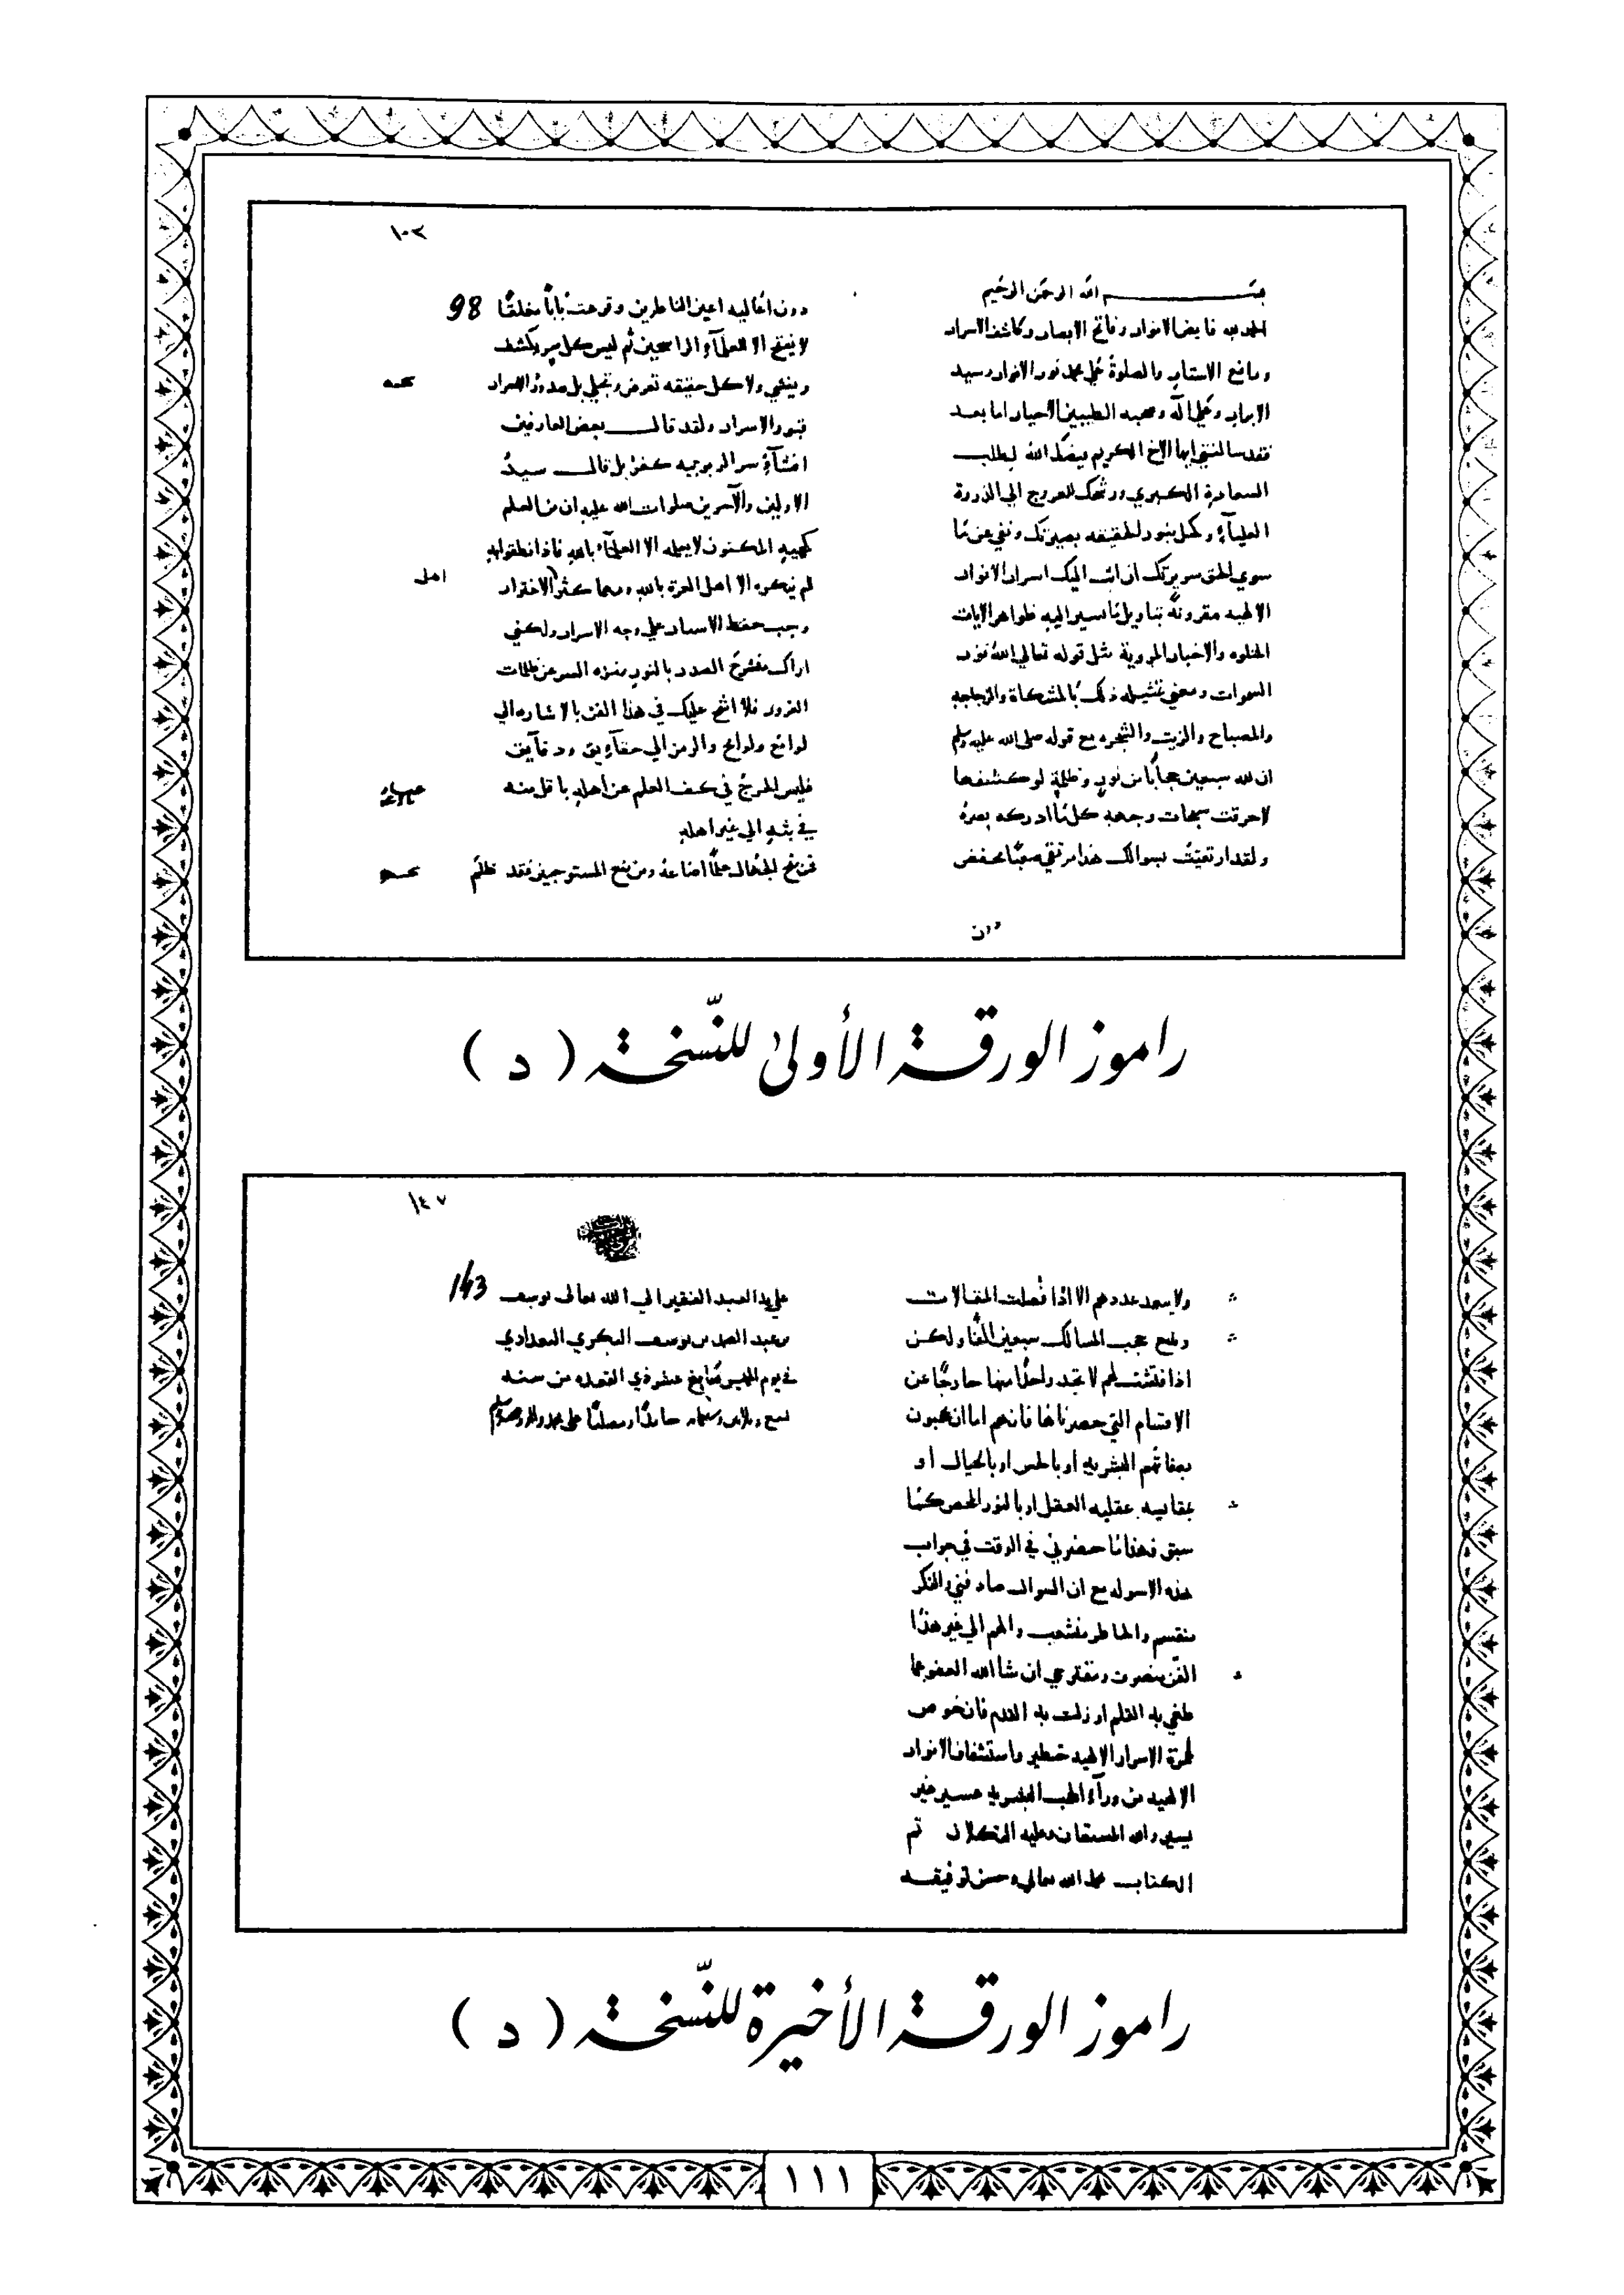 ١٠٢
بسم الله الرحمن الرحيم
الحمد لله فايض الانوار وفاتح الابصار وكاشف الاسرار
ورافع الاستار والصلوة على محمد نور الانوار وسيد
الابرار وعلى اله وصحبه الطيبين الاخيار اما بعد
فقد سالتني ايها الاخ الكريم قيضك الله لطلب
السعادة الكبرى ورشحك للعروج الى الذروة
العلياء وكحل بنور الحقيقه بصيرتك ونقى عن ما
سوى الحق سريرتك ان ابث اليك اسرار الانوار
الالهيه مقرونة بتاويل ما يسير اليه ظواهر الايات
المتلوه والاخبار المروية مثل قوله تعالى الله نور
السموات ومعنى تمثيله ذلك بالمشكاة والزجاجه
والمصباح والزيت والشجره مع قوله صلى الله عليه وسلم
ان لله سبعين حجابا من نور وظلمة لو كشفها
لاحرقت سبحات وجهه كل ما ادركه بصره
ولقد ارتقيت بسوالك هذا مرتقى صعبا تنخفض
دون
دون اعاليه اعين الناظرين وقرعت بابا مغلقا 98
لا يفتح الا للعلماء الراسخين ثم ليس كل سر يكشف
ويفشى ولا كل حقيقه تعرض وتجلى بل صدور الاحرار
قبور الاسرار ولقد قال بعض العارفين
افشاء سر الربوبيه كفر بل قال سيد
الاولين والآخرين صلوات الله عليه ان من العلم
كهيئة المكنون لا يعلمه الا العلماء بالله فاذا نطقوا به
لم ينكره الا اهل الغرة بالله ومهما كثر الاغترار
اهل
وجب حفظ الاسرار على وجه الاسرار ولكنى
اراك منشرح الصدر بالنور منزه السر عن ظلمات
الغرور فلا اشح عليك في هذا الفن بالاشاره الى
لوامع ولوايح والرمز الى حقايق ودقايق
فليس الحرج في كف العلم عن اهله باقل منه
في بثه الى غير اهله
فمن منح الجهال علما اضاعه ومن منع المستوجبين فقد ظلم
راموز الورقة الأولى للنسخة ( د )
١٤٧
ولا يبعد عددهم الا اذا فصلت المقالات
وتتبع حجب السالك سبعين الفا ولكن
اذا فتشت لهم لا تجد واحدا منها خارجا عن
الاقسام التي حصرناها فانهم اما ان يحجبون
بصفاتهم البشريه او بالحس او بالخيال او
بمقايسه عقليه العقل او بالنور المحض كما
سبق فهذا ما حضرني في الوقت في جواب
هذه الاسوله مع ان السوال صادفني والفكر
منقسم والخاطر منشعب والهم الى غير هذا
الفن منصرف ومقترحي ان شا الله العفو عما
طغى به القلم او زلت به القدم فان خوض
غمرة الاسرار الالهيه خطير واستشفاف الانوار
الالهيه من وراء الحجب البشريه عسير غير
يسير والله المستعان وعليه التكلان تم
الكتاب بحمد الله تعالى وحسن توفيقه
على يد العبد الفقير الى الله تعالى يوسف 143
بن عبد الصمد بن يوسف البكري البغدادي
في يوم الخميس سابع عشر ذي القعده من سنه
حامدا ومصليا على محمد واله وصحبه وسلم
راموز الورقة الأخيرة للنسخة ( د )
١١١